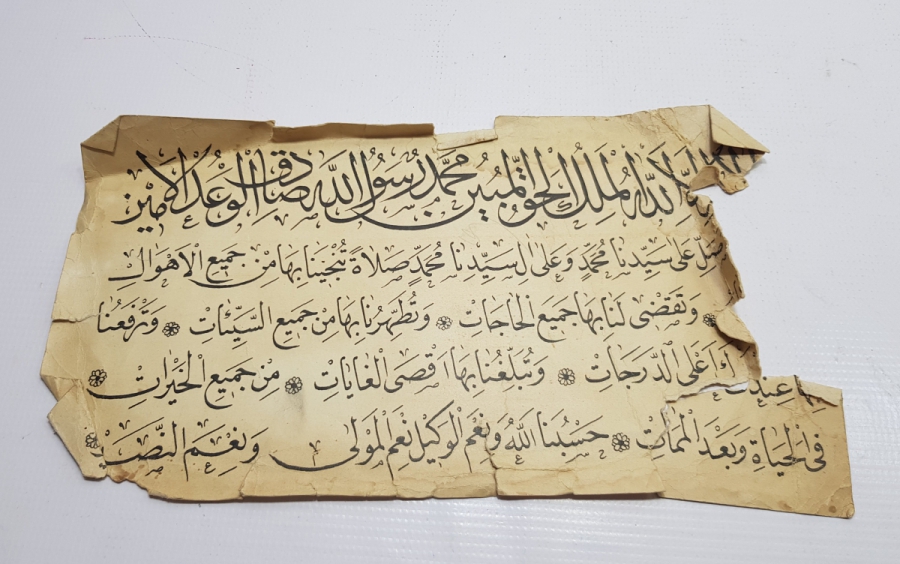 الله الملك الحق المبين محمد رسول الله صادق الوعد الامين
صل على سيدنا محمد وعلى ال سيدنا محمد صلاة تنجينا بها من جميع الاهوال
وتقضى لنا بها جميع الحاجات وتطهرنا بها من جميع السيئات وترفعنا
بها عندك اعلى الدرجات وتبلغنا بها اقصى الغايات من جميع الخيرات
فى الحياة وبعد الممات حسبنا الله ونعم الوكيل نعم المولى ونعم النصير